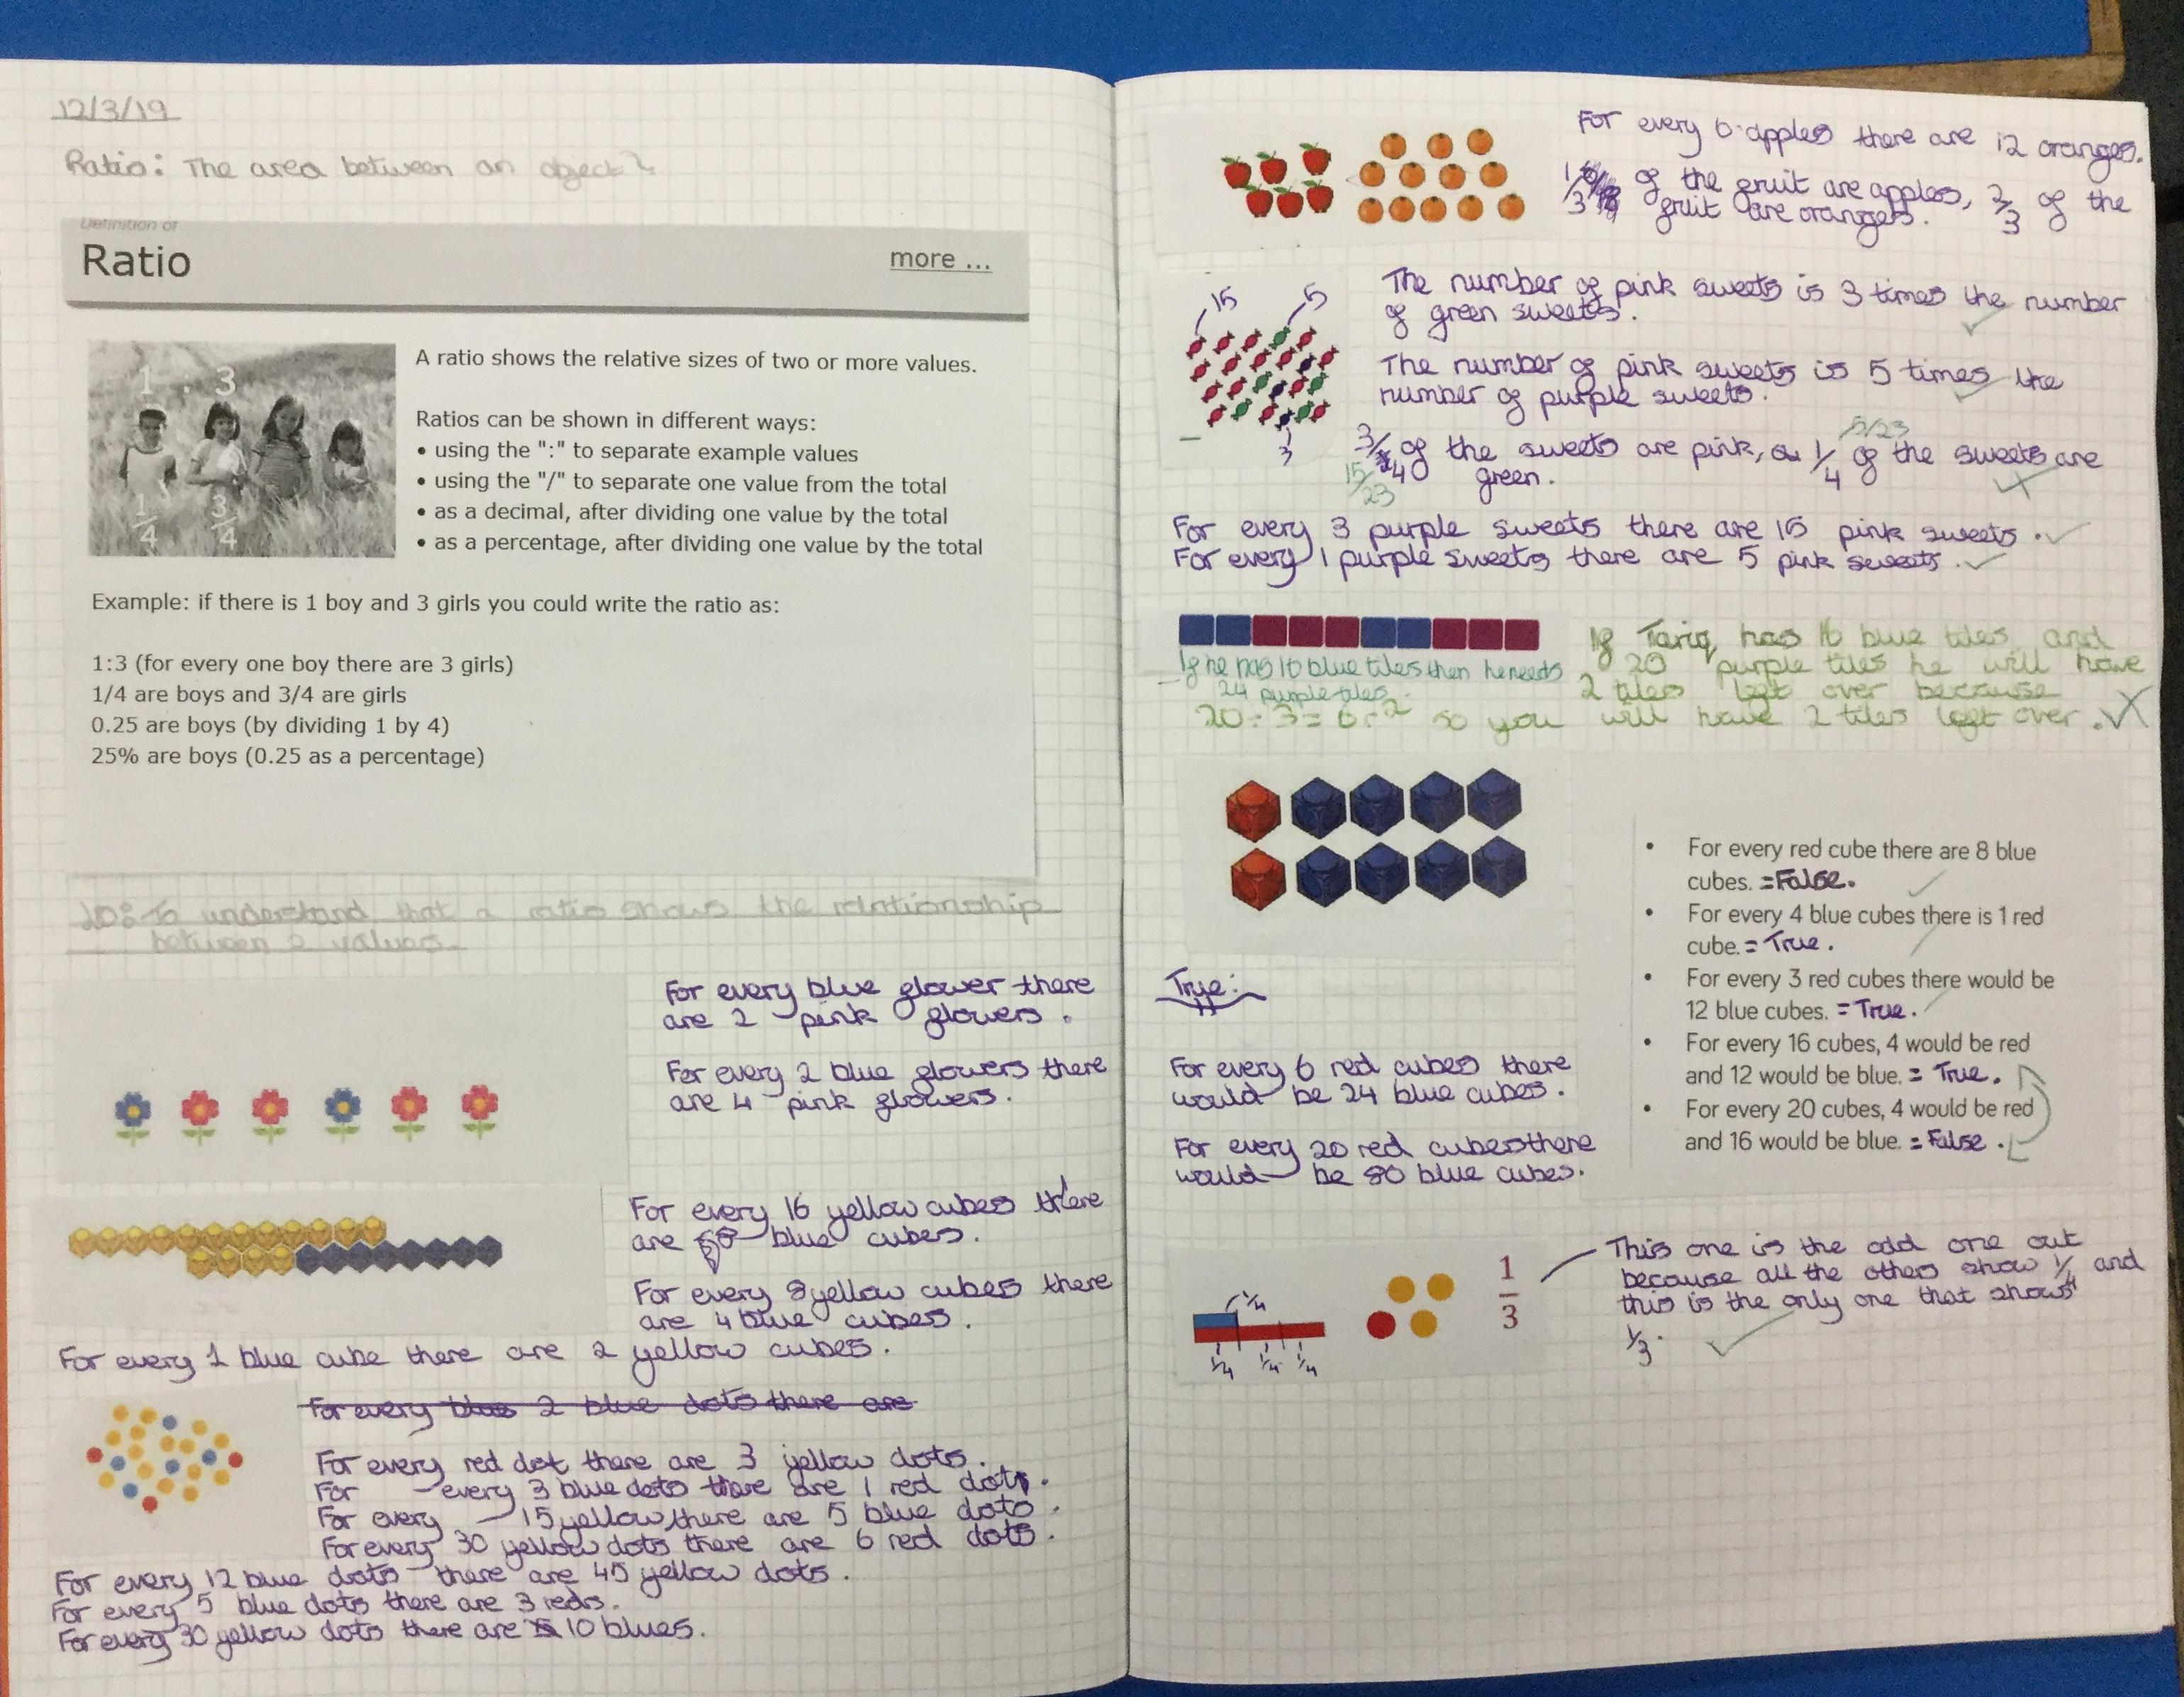 12/3/19
Ratio: The area between an object?
Definition of
Ratio
more ...
1 : 3
1/4 3/4
A ratio shows the relative sizes of two or more values.
Ratios can be shown in different ways:
• using the ":" to separate example values
• using the "/" to separate one value from the total
• as a decimal, after dividing one value by the total
• as a percentage, after dividing one value by the total
Example: if there is 1 boy and 3 girls you could write the ratio as:
1:3 (for every one boy there are 3 girls)
1/4 are boys and 3/4 are girls
0.25 are boys (by dividing 1 by 4)
25% are boys (0.25 as a percentage)
To understand that a ratio shows the relationship
between 2 values.
For every blue flower there
are 2 pink flowers.
For every 2 blue flowers there
are 4 pink flowers.
For every 16 yellow cubes there
are 8 blue cubes.
For every 8 yellow cubes there
are 4 blue cubes.
For every 1 blue cube there are 2 yellow cubes.
For every blue 2 blue dots there are
For every red dot there are 3 yellow dots.
For every 3 blue dots there are 1 red dot.
For every 15 yellow there are 5 blue dots.
For every 30 yellow dots there are 6 red dots.
For every 12 blue dots there are 45 yellow dots.
For every 5 blue dots there are 3 reds.
For every 30 yellow dots there are 10 blues.
For every 6 apples there are 12 oranges.
1/3 of the fruit are apples, 2/3 of the
fruit are oranges.
15 5
The number of pink sweets is 3 times the number
of green sweets.
The number of pink sweets is 5 times the
number of purple sweets.
3
5/23
3/4 of the sweets are pink, 1/4 of the sweets are
15/23 green.
For every 3 purple sweets there are 15 pink sweets.
For every 1 purple sweets there are 5 pink sweets.
If he has 16 blue tiles then he needs
24 purple tiles.
If Tariq has 16 blue tiles and
20 purple tiles he will have
2 tiles left over because
20÷3=6r2 so you will have 2 tiles left over.
• For every red cube there are 8 blue
cubes. = False.
• For every 4 blue cubes there is 1 red
cube. = True.
• For every 3 red cubes there would be
12 blue cubes. = True.
• For every 16 cubes, 4 would be red
and 12 would be blue. = True.
• For every 20 cubes, 4 would be red
and 16 would be blue. = False.
True:
For every 6 red cubes there
would be 24 blue cubes.
For every 20 red cubes there
would be 80 blue cubes.
1/4
1/4 1/4 1/4
1/3
This one is the odd one out
because all the others show 1/4 and
this is the only one that shows
1/3.